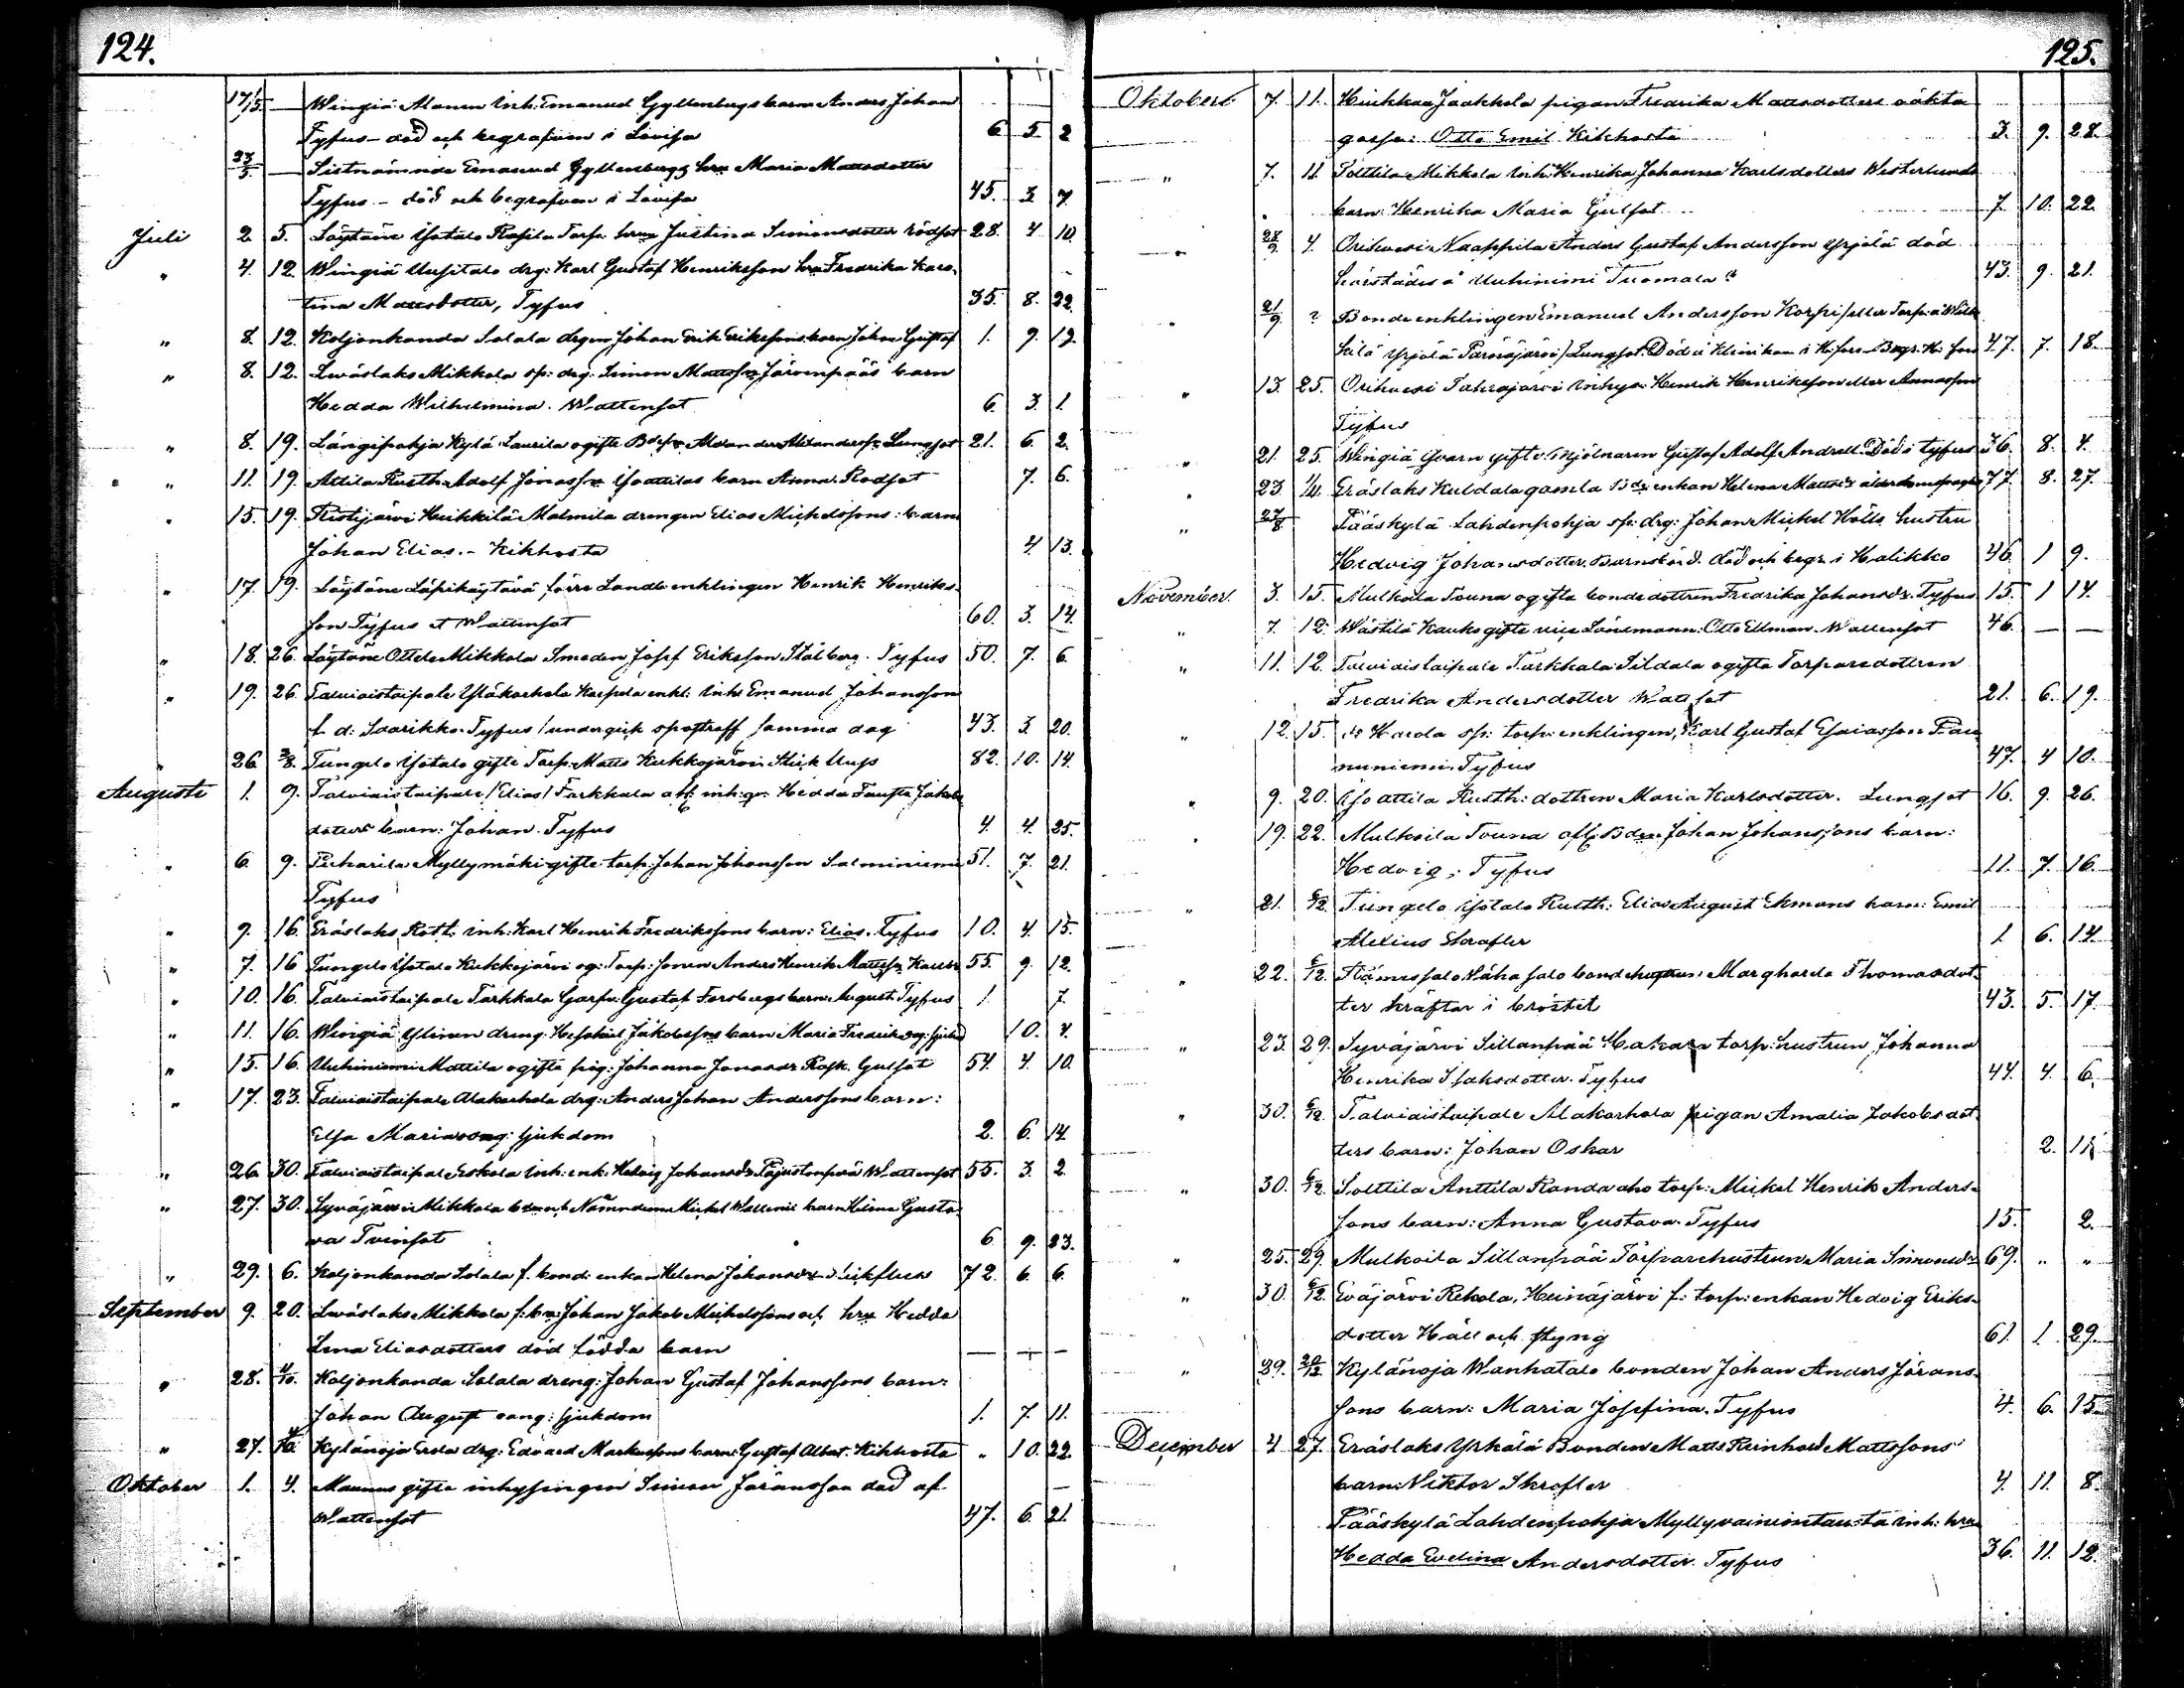 124.
17/5 — Wingiä Manun Inh: Emanuel Gyllenbergs barn Anders Johan
Tyfus – död och begrafven i Lovisa 6 5 2
23/5 — Sistnämnde Emanuel Gyllenbergs hru Maria Mattsdotter
Tyfus – död och begrafven i Lovisa 45. 3 7
Juli 2 5. Löytäne Isotalo Torp. hru Justina Simonsdotter rödsot 28. 4 10
" 4. 12 Wingiä Uusitalo drg: Karl Gustaf Henriksson hru Fredrika Karo-
lina Mattsdotter, Tyfus 35. 8. 22.
" 8. 12. Koljonkanda Salala drgen Johan Erik Erikssons barn Johan Gustaf 1. 9. 19.
" 8. 12. Liväslaks Mikkola sp: drg: Simon Mattsson Järvenpääs barn
Hedda Wilhelmina. Wattensot 6. 3. 1.
" 8. 19. Långipohja Kylä Laurila ogifte Alexander Alexanderss: Lungsot 21. 6. 2.
" 11. 19. Attila Rusth. Adolf Jonasson Isoattilas barn Anna. Rödsot 7. 6.
" 15. 19. Ristijärvi Heikkilä Malmila drengen Elias Michelssons: barn
Johan Elias. – Kikhosta 4. 13.
" 17. 19. Löytäne Läpikäytävä förre Landb: enklingen Henrik Henriks-
son Tyfus et Wattensot 60. 3. 14.
" 18. 26. Löytäne Ottela Mikkola Smeden Josef Eriksson Stålberg. Tyfus 50. 7. 6.
" 19. 26. Talviaistaipale Yläkarhola Karpela enkl: Inh: Emanuel Johansson
f. d: Saarikko. Tyfus / undergick samma dag 43. 3. 20.
" 26 2/8. Tungelo Isotalo gifte Torp. Matts Kukkojärvi 82. 10. 14.
Augusti 1. 9. Talviaistaipale /Elias/ Tarkkala Hedda Jakobs
dotters barn: Johan. Tyfus 4. 4. 25.
" 6. 9. Piikarila Myllymäki gifte torp: Johan Johansson Salminiemi 51. 7. 21.
Tyfus
" 9. 16. Eräslaks Rott. inh: Karl Henrik Fredrikssons barn: Elias. Tyfus 10. 4. 15.
" 7. 16 Tungelo Isotalo Kukkojärvi og: Torp: sonen Anders Henrik Mattss: 55. 9. 12.
" 10. 16. Talviaistaipale Tarkkala Gustaf Forsbergs barn: August. Tyfus 1. 7.
" 11. 16. Wingiä Ylinen dreng: Jakobssons barn Maria Fredrika 10. 4.
" 15. 16. Uuhiniemi Mattila ogifta pig: Johanna Jonasdr Rask. Gulsot 54. 4. 10.
" 17. 23. Talviaistaipale Alakarhola drg: Anders Johan Anderssons barn:
Elsa Maria eng: sjukdom 2. 6. 14.
" 26. 30. Talviaistaipale Eskola Inh: enk: Hedvig Johansdr Wattensot 55. 3. 2.
" 27. 30. Syväjärvi Mikkola Nämndeman Mickel barn Helena Gusta-
va Tvinsot 6 9. 23.
" 29. 6. Koljonkanda Salala f. bond: enkan Helena Johansdr 72. 6. 6.
September 9. 20. Liväslaks Mikkola Johan Jakob Michelssons och hru Hedda
Lena Eliasdotters död födda barn — — —
" 28. 4/10. Koljonkanda Salala dreng: Johan Gustaf Johanssons barn:
Johan August eng: sjukdom 1. 7. 11.
" 27. 4/10. Kylänoja Erola drg: Edvard Markussons barn: Gustaf Albert. Kikhosta " 10. 22.
Oktober 1. 4. Maunus gifte inhysingen Simon Jöransson död af —
Wattensot 47. 6. 21.
125.
Oktober 7. 11. Heikkaa Jaakkola pigan Fredrika Mattsdotters oäkta
gosse: Otto Emil Kikhosta 3. 9. 28.
" 7. 11. Tolttila Mikkola Inh: Henrika Johanna Karlsdotters Westerlunds
barn: Henrika Maria Gulsot 7. 10. 22.
" 28/9. 4. Orihvesi Naappila Anders Gustaf Andersson Yrjölä död
härstädes å Uuhinimi Tuomala 43. 9. 21.
" 21/9. ? Bonde enklingen Emanuel Andersson Korpi /eller Torp: å
kilä Yrjölä Parvajärvi/ Lungsot. Död å Kliniken i H:fors 47. 7. 18.
" 13. 25. Orihvesi Inhys: Henrik Henriksson eller Annasson
Tyfus
" 21. 25. Wingiä Qvarn gifte Mjölnaren Gustaf Adolf Andrell. Död i tyfus 36. 8. 4.
" 23. 1/11. Eräslaks Kuldala gamla enkan Helena Mattsdr 77. 8. 27.
" 27/8 Pääskylä Lahdenpohja sp: drg: Johan Mickel Hölls hustru
Hedvig Johansdotter, Barnsbörd. död och begr: i Halikko 46. 1 9.
November 3. 15. Mulkoila Touna ogifta bondedottren Fredrika Johansdr. Tyfus 15. 1 14.
" 7. 12. Wästilä Kauko gifte vice Länsmann: Otto Ellman. Wattensot 46. — —
" 11. 12. Talviaistaipale Tarkkala Sildala ogifta Torparedottren
Fredrika Andersdotter Wattsot 21. 6. 19.
" 12. 15. Karda sp: torp: enklingen, Karl Gustaf Esaiasson Pau
nuniemi. Tyfus 47. 4 10.
" 9. 20. Isoattila Rusth: dottren Maria Karlsdotter. Lungsot 16. 9. 26.
" 19. 22. Mulkoila Touna Johan Johanssons barn:
Hedvig; Tyfus 11. 7. 16.
" 21. 6/12. Tungelo Isotalo Rusth: Elias August Ekmans barn: Emil
Alexius Skrofler 1. 6. 14.
" 22. 6/12. Flämessalo Nähasalo bondehustrun: Margharela Thomasdot-
ter Kräftor i bröstet 43. 5. 17.
" 23. 29. Syväjärvi Sillanpää Hakara torp: hustrun Johanna
Henrika Isaksdotter. Tyfus 44. 4. 6.
" 30. 6/12. Talviaistaipale Alakarhola pigan Amalia Jakobsdot-
ters barn: Johan Oskar 2. 18
" 30. 6/12. Solttila Anttila Randa aho torp: Mickel Henrik Anders-
sons barn: Anna Gustava. Tyfus 15. 2.
" 25. 29. Mulkoila Sillanpää Torparehustrun Maria Simonsdr 69. " "
" 30. 6/12. Eväjärvi Rekola, Heinäjärvi f: torp: enkan Hedvig Eriks-
dotter Håll och styng 61. 1 29.
" 29. 20/12. Kylänoja Wanhatalo bonden Johan Anders Jörans-
sons barn: Maria Josefina. Tyfus 4. 6. 15.
December 4 27. Eräslaks Yrkölä Bonden Matts Reinhold Mattssons
barn: Viktor Skrofler 4. 11. 8.
Pääskylä Lahdenpohja Myllyvainiontausta inh: hru
Hedda Evelina Andersdotter. Tyfus 36. 11. 12.